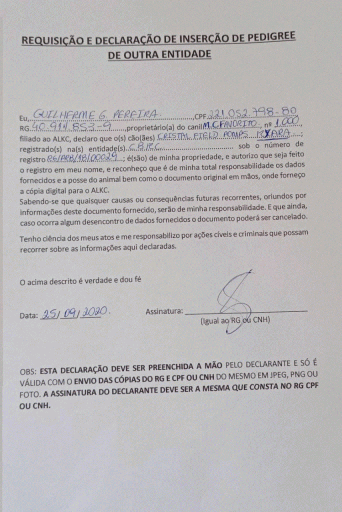 REQUISIÇÃO E DECLARAÇÃO DE INSERÇÃO DE PEDIGREE
DE OUTRA ENTIDADE
Eu, GUILHERME G PEREIRA, CPF 221.052.798-80
RG 40.914.853-9, proprietário(a) do canil M.C FAVORITO, nº 1.000
filiado ao ALKC, declaro que o(s) cão(ães) CRISTAL FIELD POMPS
registrado(s) na(s) entidade(s) C.B.K.C sob o número de
registro, é(são) de minha propriedade, e autorizo que seja feito
o registro em meu nome, e reconheço que é de minha total responsabilidade os dados
fornecidos e a posse do animal bem como o documento original em mãos, onde forneço
a cópia digital para o ALKC.
Sabendo-se que quaisquer causas ou consequências futuras recorrentes, oriundos por
informações deste documento fornecido, serão de minha responsabilidade. E que ainda,
caso ocorra algum desencontro de dados fornecidos o documento poderá ser cancelado.
Tenho ciência dos meus atos e me responsabilizo por ações cíveis e criminais que possam
recorrer sobre as informações aqui declaradas.
O acima descrito é verdade e dou fé
Data: 25/09/2020. Assinatura:
(Igual ao RG ou CNH)
OBS: ESTA DECLARAÇÃO DEVE SER PREENCHIDA A MÃO PELO DECLARANTE E SÓ É
VÁLIDA COM O ENVIO DAS CÓPIAS DO RG E CPF OU CNH DO MESMO EM JPEG, PNG OU
FOTO. A ASSINATURA DO DECLARANTE DEVE SER A MESMA QUE CONSTA NO RG CPF
OU CNH.